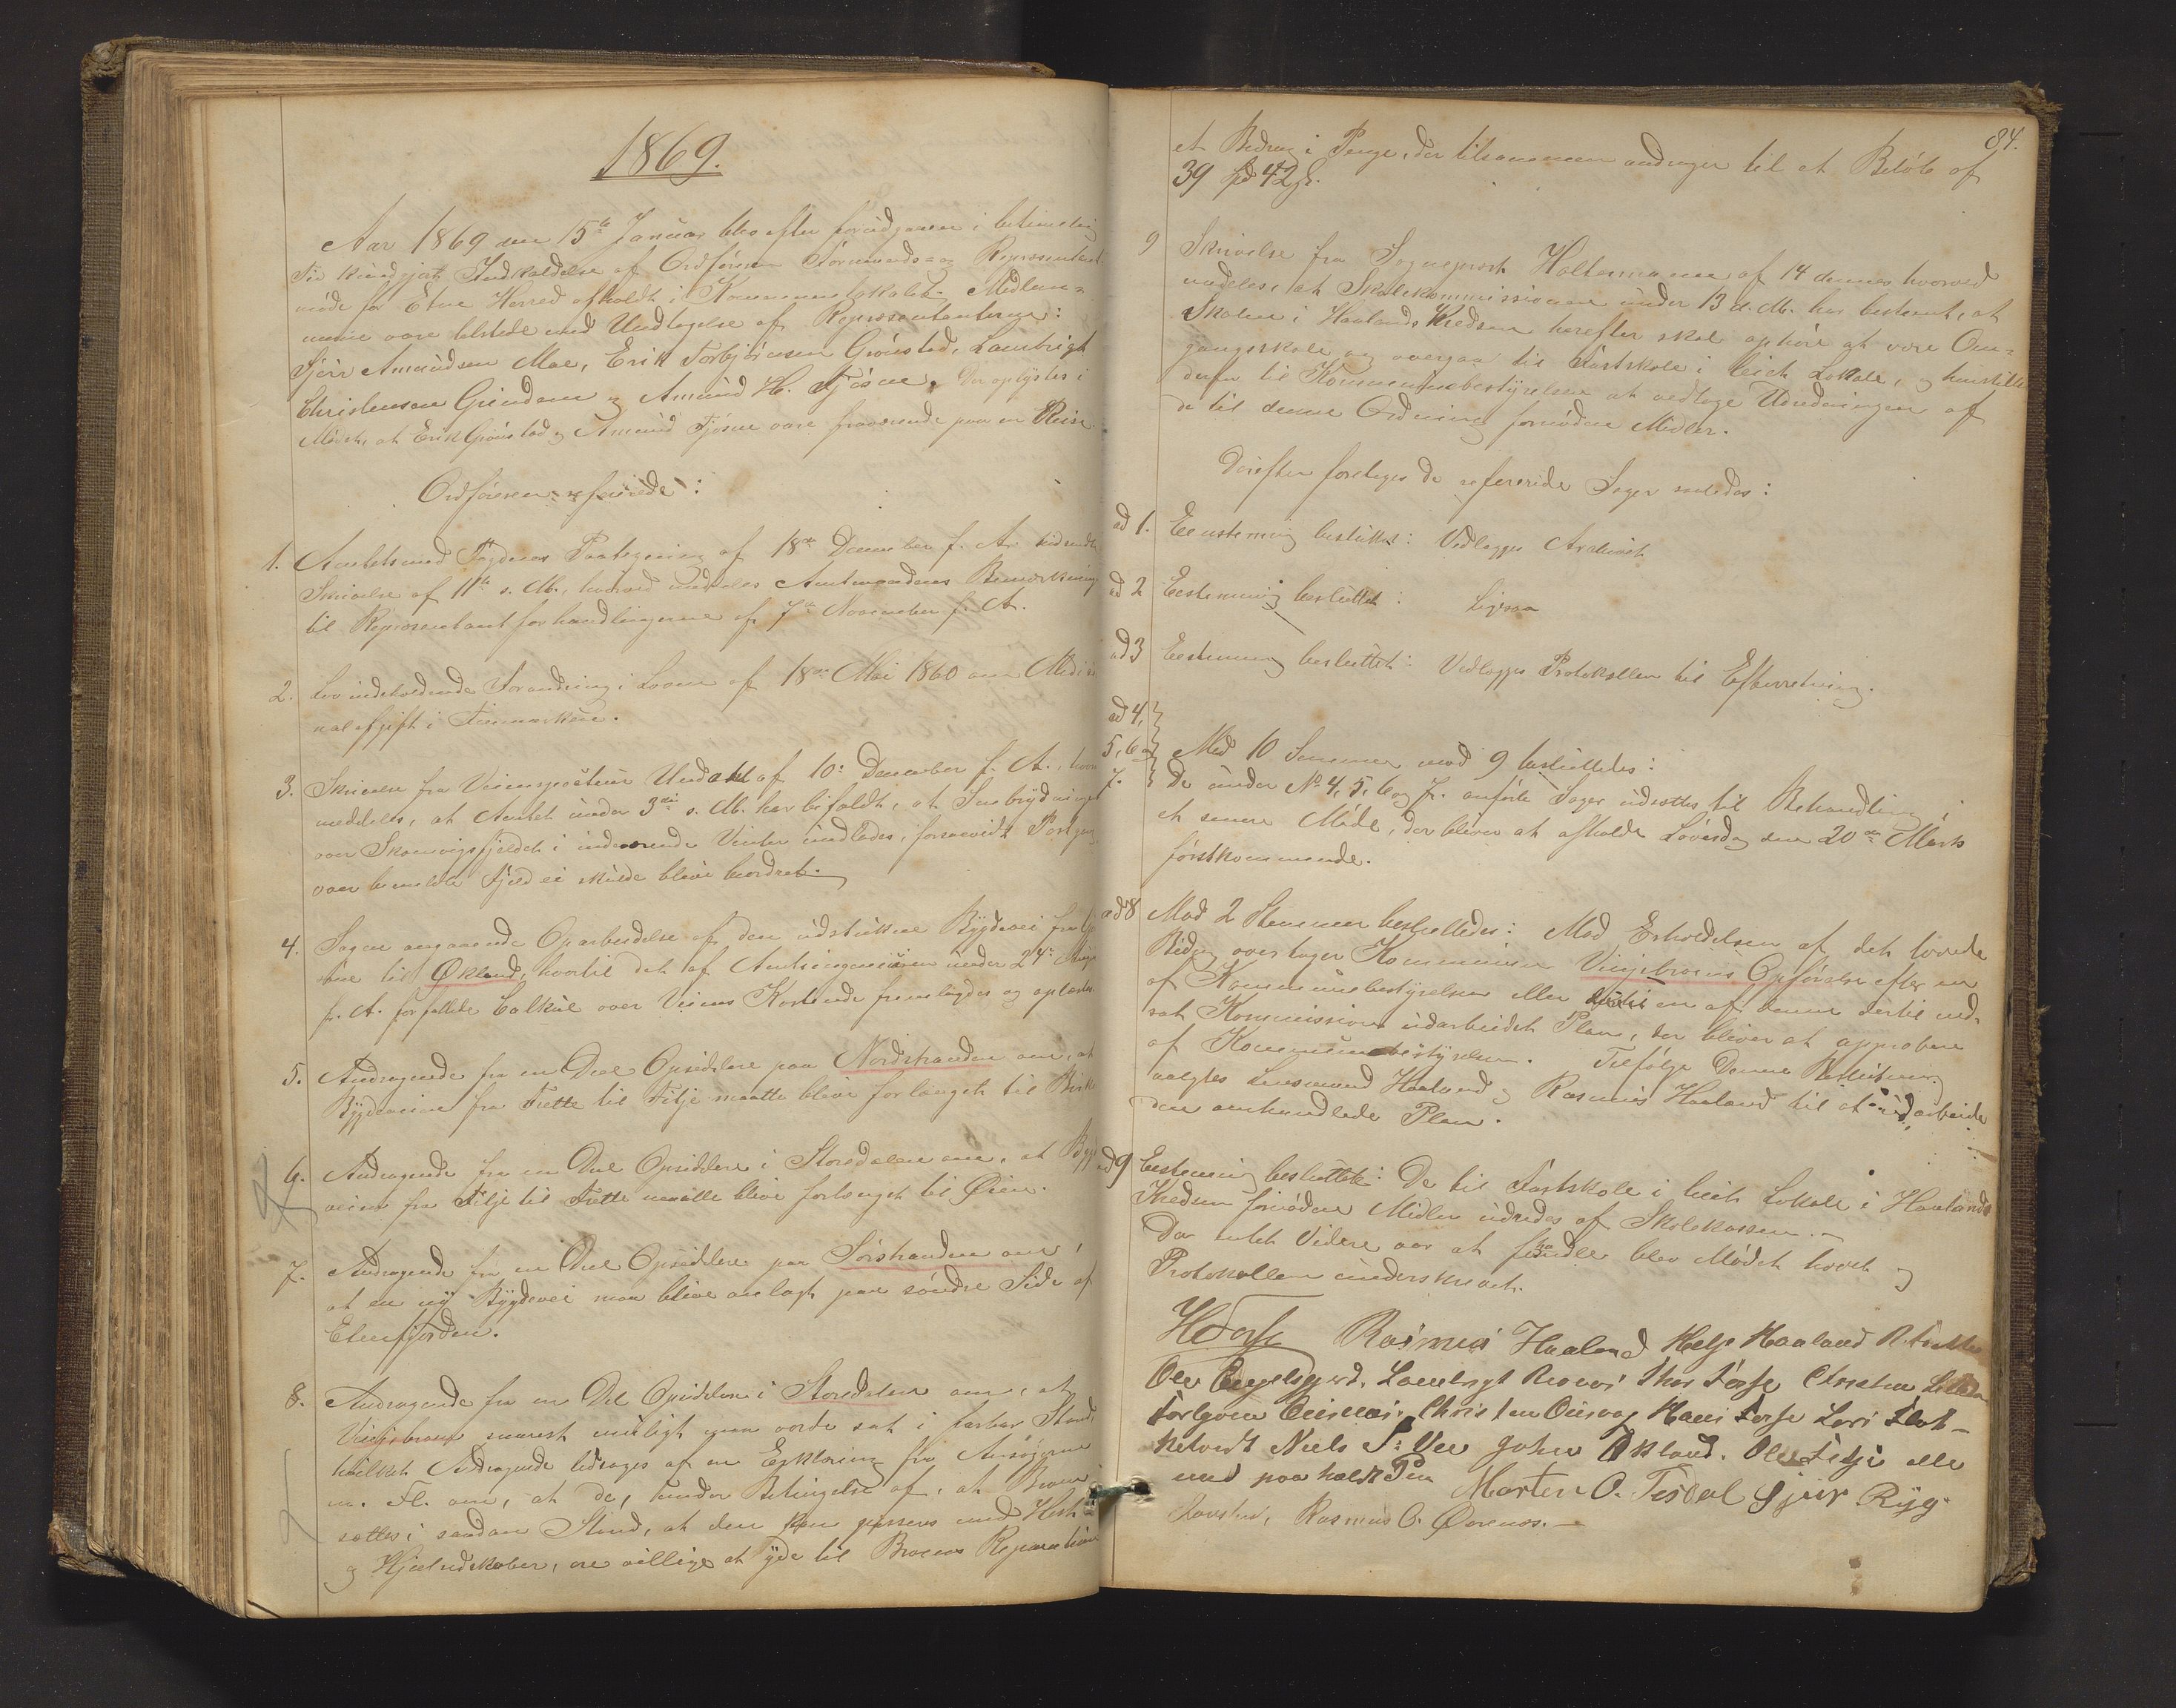 1869.
Aar 1869 den 15de Januar blev efter forudgaaen i betimelig
Tid kundgjort Indkaldelse af Ordføreren Formands og Repræsentant-
møde for Etne Herred afholdt i Kommunelokalet. Medlem-
merne vare tilstede med Undtagelse af Repræsentanterne:
Sjur Amundsen Moe, Erik Torbjørnsen Grønstad, Lambrigt
Christensen Grindem og Amund H. Fjøsne. Der oplystes i
Mødet, at Erik Grønstad og Amund Fjøsne vare fraværende paa en Reise.
Ordføreren refererede:
1. Amtets med Fogdens Paategning af 18de December f. A.
Skrivelse af 11te s. M., hvorved meddeles Amtmandens Bemærkning
til Repræsentantforhandlingerne af 7de November f. A.
2. Lov indeholdende Forandring i Loven af 18de Mai 1860 om Medici
nalafgift i Finmarken.
3. Skrivelse fra Veiinspecteur Undahl af 10de December f. A.,
meddeles, at Amtet under 3die s. M. har bifaldt, at Snebrydningen
over Skaanvigsfjeldet i indeværende Vinter undlades, forsaavidt Postgang
over bemeldte Fjeld ei skulde blive beordret.
4. Sagen angaaende Oparbeidelse af den udstukne Bygdevei fra
til Økland, hvortil det af Amtsingeniøren under 24de
f. A. forfattede Calkül over Veiens Kostende fremlagdes og oplæstes.
5. Andragende fra en Deel Opsiddere paa Nordstranden om, at
Bygdeveien fra Tvette til Fitje maatte blive forlænget til
6. Andragende fra en Deel Opsiddere i Storedalen om, at Bygde
veien fra Fitje til Tvette maatte blive forlænget til Øien.
7. Andragende fra en Deel Opsiddere paa Sørstranden om,
at en ny Bygdevei maa blive anlagt paa søndre Side af
Etnefjorden.
8. Andragende fra en Del Opsiddere i Storedalen om, at
Vinjebroen snarest muligt maa vorde sat i farbar Stand,
hvilket Andragende ledsages af en Erklæring fra Ansøgerne
m. Fl. om, at de, under Betingelse af, at Broen
sættes i saadan Stand, at den kan passeres med Hest
og Hjulredskaber, ere villige at yde til Broens Reparation
84.
et Bidrag i Penge, der tilsammen andrager til et Beløb af
39 Spd 42 ß.
9 Skrivelse fra Sogneprest Haltermann af 14 dennes hvorved
meddeles, at Skolekommissionen under 13 d. M. har bestemt, at
Skolen i Haalands Kredsen herefter skal ophøre at være Om-
gangsskole og overgaa til Fastskole i leiet Lokale, og henstilles
derfor til Kommunebestyrelsen at vedtage Udredningen af
de til denne Ordning fornødne Midler.
Derefter foretoges de refererede Sager saaledes:
ad 1. Eenstemmig besluttet: Vedlægges Archivet
ad 2 Eenstemmig besluttet: Ligesaa
ad 3 Eenstemmig besluttet: Vedlægges Protokollen til Efterretning.
ad 4,
5, 6 og
7.
Med 10 Stemmer mod 9 besluttedes:
De under No 4, 5, 6 og 7. anførte Sager udsættes til Behandling i
et senere Møde, der bliver at afholde Løverdag den 20de Marts
førstkommende.
ad 8 Mod 2 Stemmer besluttedes: Mod Erholdelsen af det lovede
Bidrag overtager Kommunen Vinjebroens Opførelse efter en
af Kommunebestyrelsen eller en af denne dertil ned-
sat Kommission udarbeidet Plan, der bliver at approbere
af Kommunebestyrelsen. Tilfølge Denne Beslutning
valgtes Lensmand Haaland og Rasmus Haaland til at udarbeide
den omhandlede Plan.
ad 9 Eenstemmig besluttet: De til Fastskole i leiet Lokale i Haalands
Kredsen fornødne Midler udredes af Skolekassen.
Da intet Videre var at forhandle blev Mødet hævet og
Protokollen underskrevet.
Rasmus Haaland Helje Haaland
Ole Lambrigt Thor Christen
Christen Hans
Niels S. Vee John Økland. Ole Fitje alle
med paaholdt Pen Morten O. Tesdal Sjur Ryg
Rasmus O.